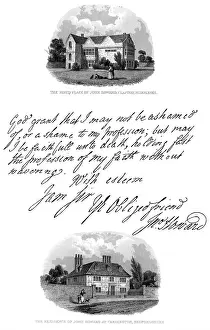 THE BIRTH PLACE OF JOHN HOWARD, CLAPTON, MIDDLESEX.
God grant that I may not be ashamed
of, or a shame to my profession; but may
I be faithfull unto death, holding fast
the profession of my faith without
wavering.
With esteem
I am Sir
Yr. Obliged friend
Jno. Howard
THE RESIDENCE OF JOHN HOWARD AT CARDINGTON, BEDFORDSHIRE.